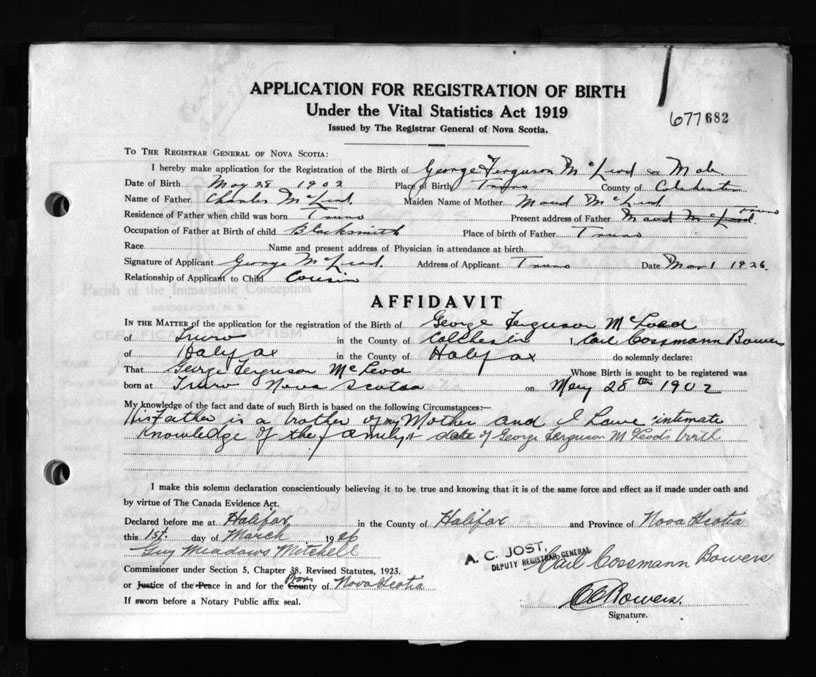 APPLICATION FOR REGISTRATION OF BIRTH
Under the Vital Statistics Act 1919
Issued by The Registrar General of Nova Scotia.
677682
To The Registrar General of Nova Scotia:
I hereby make application for the Registration of the Birth of George Ferguson McLeod Sex Male
Date of Birth May 28 1902 Place of Birth Truro County of Colchester
Name of Father Charles McLeod Maiden Name of Mother Maud McLeod
Residence of Father when child was born Truro Present address of Father Maud McLeod Truro
Occupation of Father at Birth of child Blacksmith Place of birth of Father Truro
Race Name and present address of Physician in attendance at birth
Signature of Applicant George McLeod Address of Applicant Truro Date Mar 1 1926
Relationship of Applicant to Child Cousin
AFFIDAVIT
In the Matter of the application for the registration of the Birth of George Ferguson McLeod
of Truro in the County of Colchester I, Carl Cossmann Bowers
of Halifax in the County of Halifax do solemnly declare:
That George Ferguson McLeod Whose Birth is sought to be registered was
born at Truro Nova Scotia on May 28th 1902
My knowledge of the fact and date of such Birth is based on the following Circumstances:—
His Father is a brother of my Mother and I have intimate
Knowledge of the family & date of George Ferguson McLeods birth
I make this solemn declaration conscientiously believing it to be true and knowing that it is of the same force and effect as if made under oath and
by virtue of The Canada Evidence Act.
Declared before me at Halifax in the County of Halifax and Province of Nova Scotia
this 1st. day of March 1926
Guy Meadows Mitchell
A. C. JOST,
DEPUTY REGISTRAR GENERAL
Carl Cossmann Bowers
Commissioner under Section 5, Chapter 38, Revised Statutes, 1923.
or Justice of the Peace in and for the County Prov of Nova Scotia
If sworn before a Notary Public affix seal.
CCBowers.
Signature.